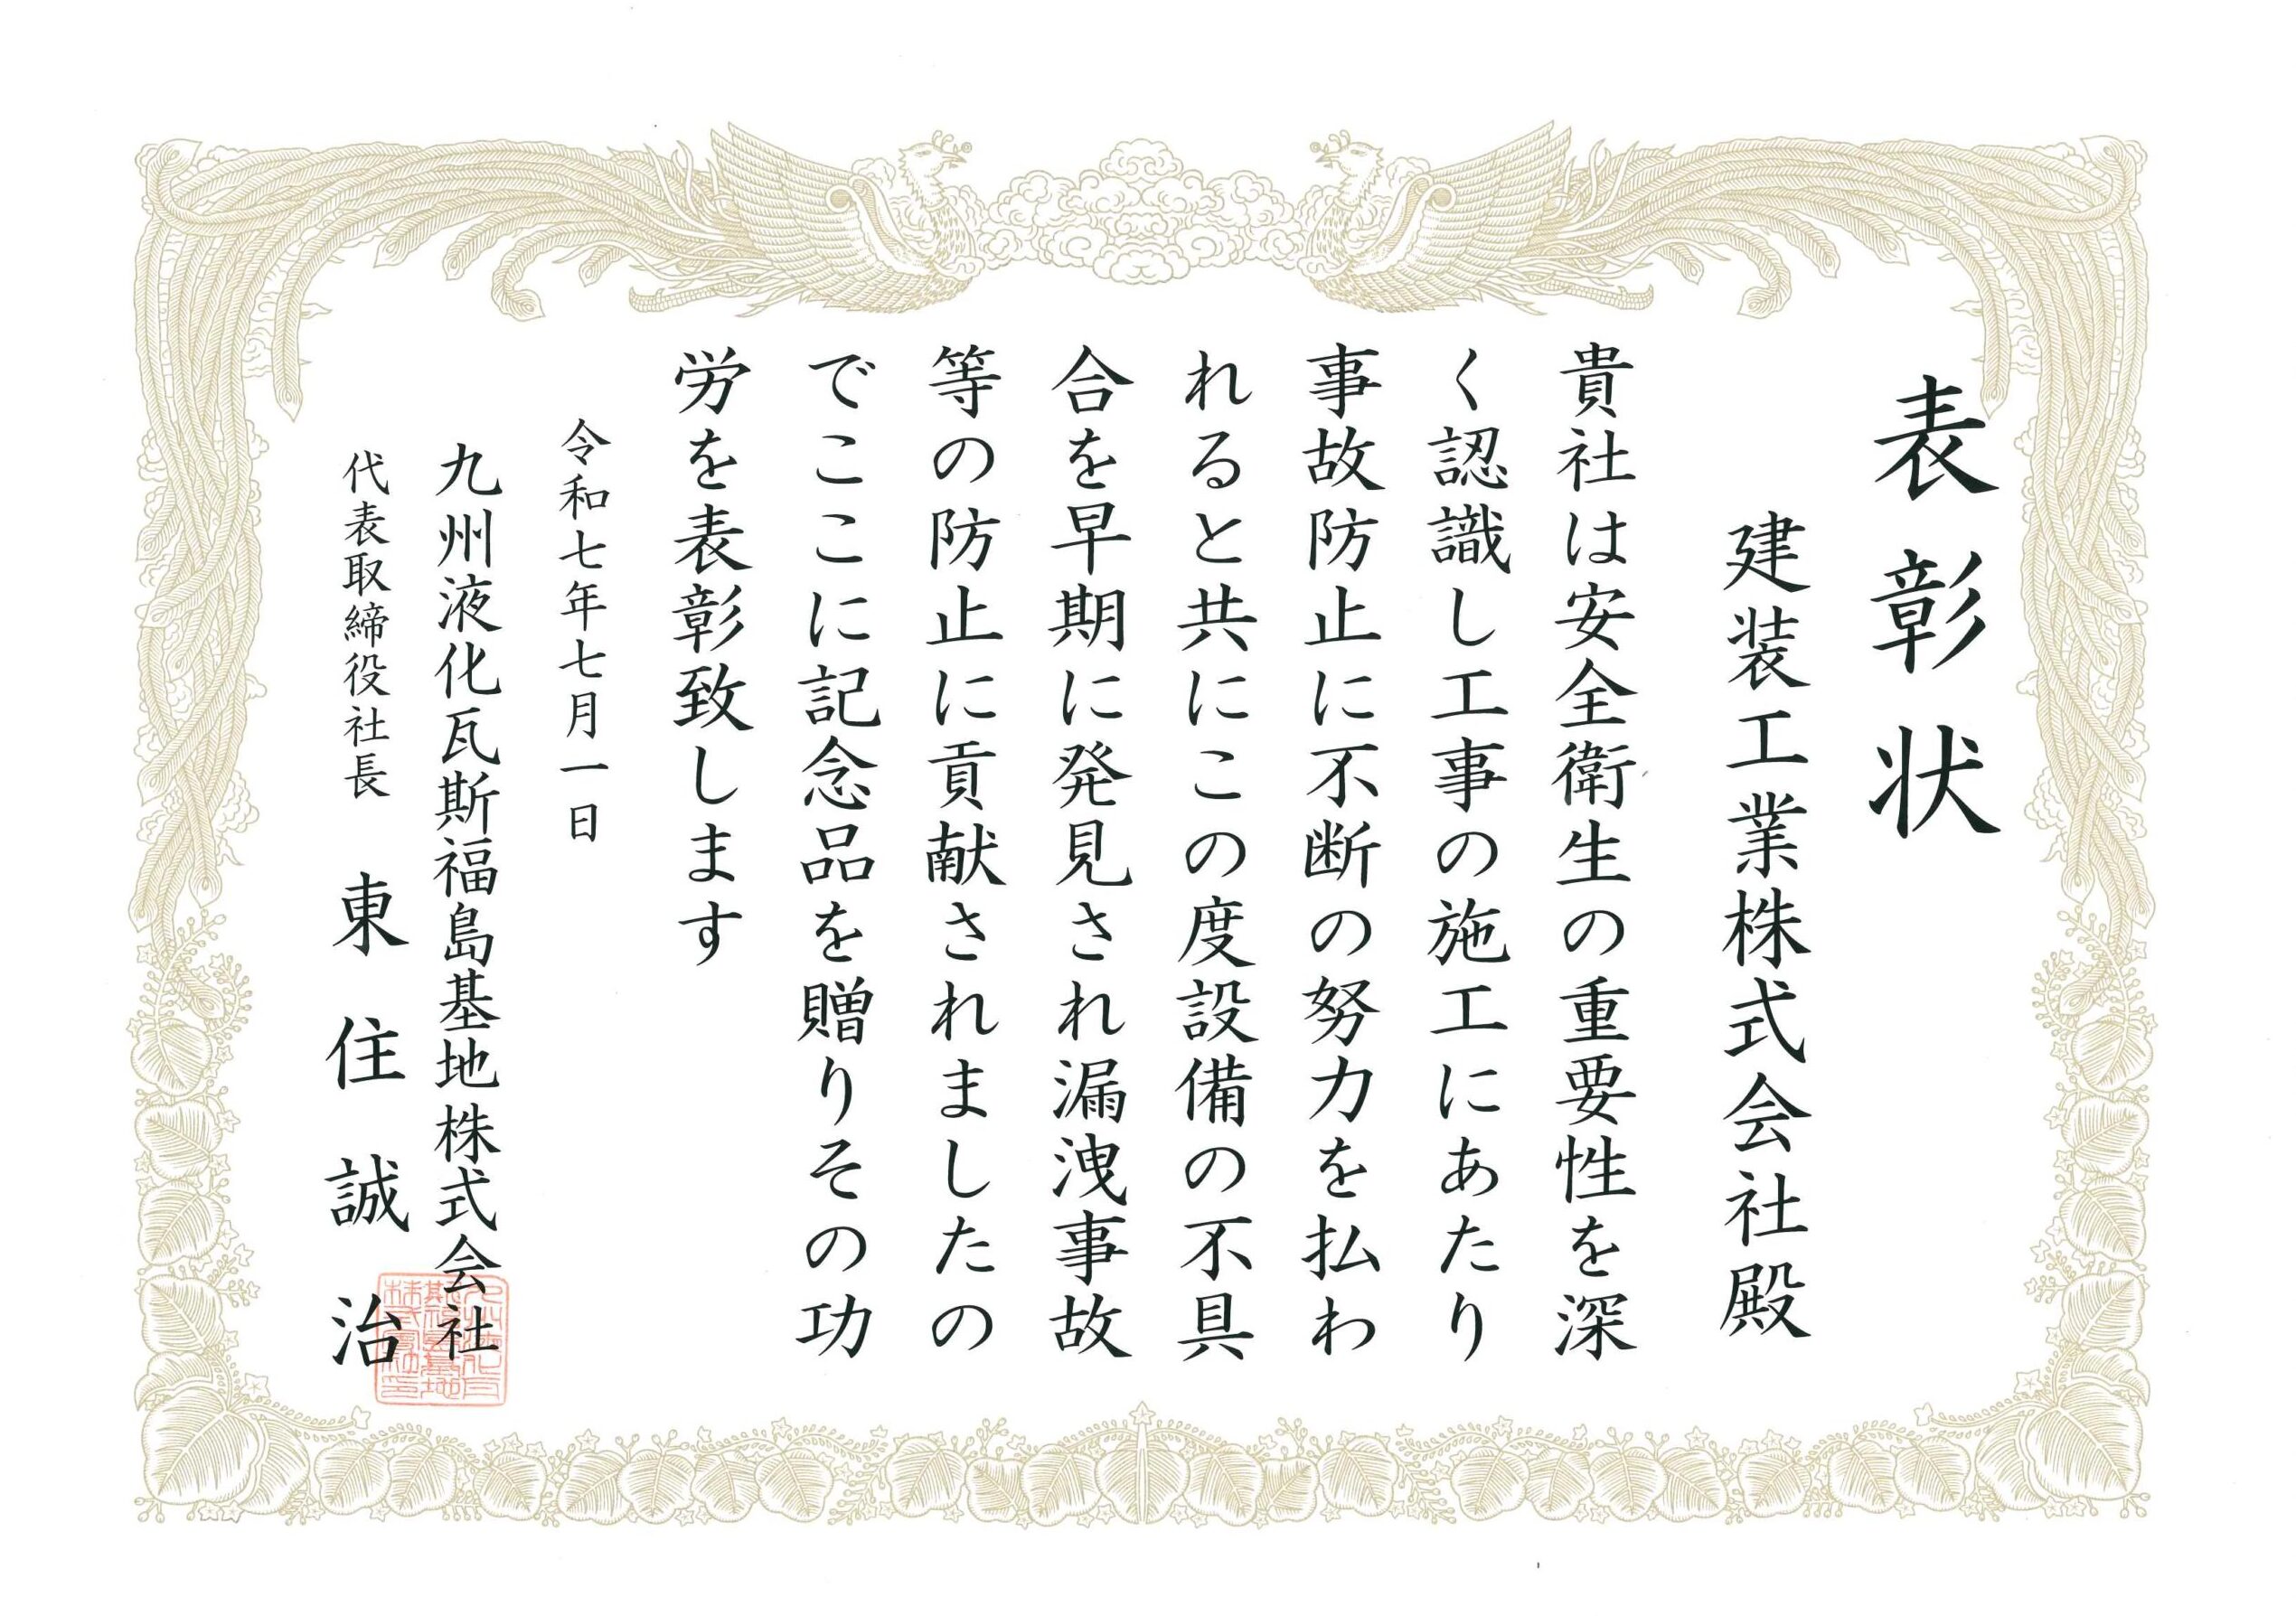 表彰状
建装工業株式会社殿
貴社は安全衛生の重要性を深
く認識し工事の施工にあたり
事故防止に不断の努力を払わ
れると共にこの度設備の不具
合を早期に発見され漏洩事故
等の防止に貢献されましたの
でここに記念品を贈りその功
労を表彰致します
令和七年七月一日
九州液化瓦斯福島基地株式会社
代表取締役社長 東住誠治